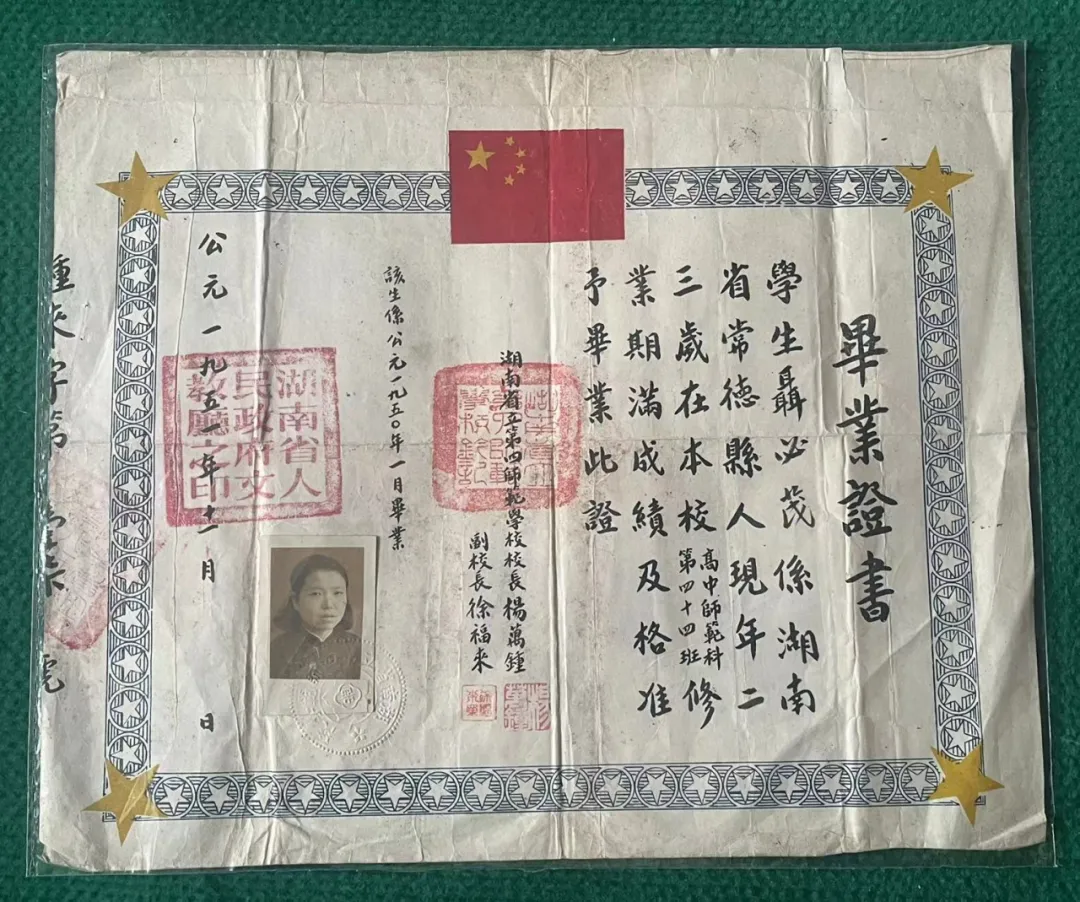 畢業證書
學生聶必茂係湖南
省常德縣人現年二
三歲在本校高中師範科第四十四班修
業期滿成績及格准
予畢業此證
湖南省立第四師範學校校長楊萬鍾
副校長徐福來
該生係公元一九五〇年一月畢業
湖南省人
民政府文
教廳之印
公元一九五一年十一月 日
鍾來字第
號